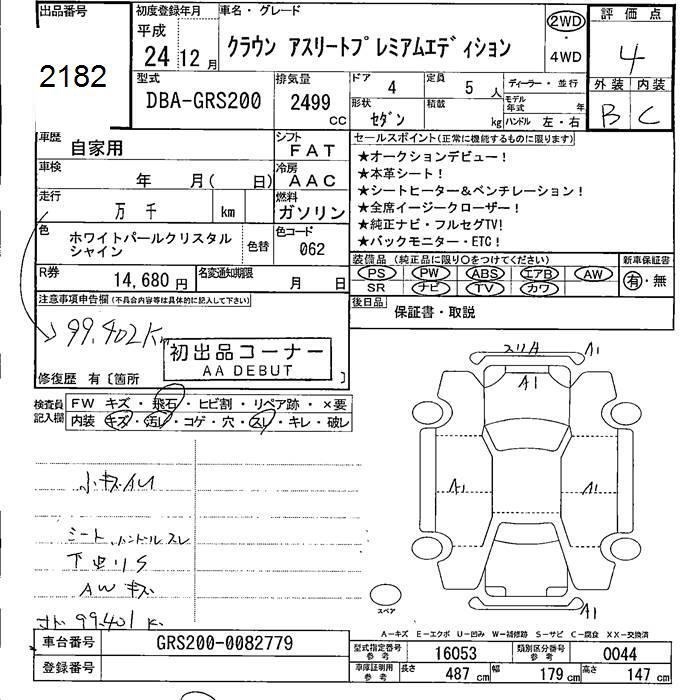 出品番号
2182
初度登録年月
平成
24 12 月
車名・グレード
クラウン アスリートプレミアムエディション
2WD
・
4WD
評価点
4
外装 内装
B C
型式
DBA-GRS200
排気量
2499 CC
ドア 4
定員 5 人
ディーラー・並行
形状 セダン
積載 kg
モデル年式 年
ハンドル 左・右
車歴
自家用
シフト
FAT
車検
年 月( 日)
冷房
AAC
走行
万 千 km
燃料
ガソリン
色
ホワイトパールクリスタル
シャイン
色替
色コード
062
R券
14,680 円
名変通知期限
月 日
セールスポイント(正常に機能するものに限ります)
★オークションデビュー!
★本革シート!
★シートヒーター&ベンチレーション!
★全席イージークローザー!
★純正ナビ・フルセグTV!
★バックモニター・ETC!
装備品 (純正品に限り○をつけてください)
PS PW ABS エアB AW
SR ナビ TV カワ
新車保証書
有・無
後日品
保証書・取説
注意事項申告欄(不具合内容等は具体的に記入して下さい)
99,402Km
初出品コーナー
AA DEBUT
修復歴 有〔箇所 〕
検査員
記入欄
FW キズ・飛石・ヒビ割・リペア跡・×要
内装 キズ・汚レ・コゲ・穴・スレ・キレ・破レ
小キズ AU
シート、ハンドルスレ
AW キズ
99,401 K
スリA A1
A1
A1
A1
A1
スペア
A-キズ E-エクボ U-凹み W-補修跡 S-サビ C-腐食 XX-交換済
車台番号
GRS200-0082779
登録番号
型式指定番号
参考
16053
類別区分番号
参考
0044
車庫証明用
参考
長さ 487 cm
幅 179 cm
高さ 147 cm